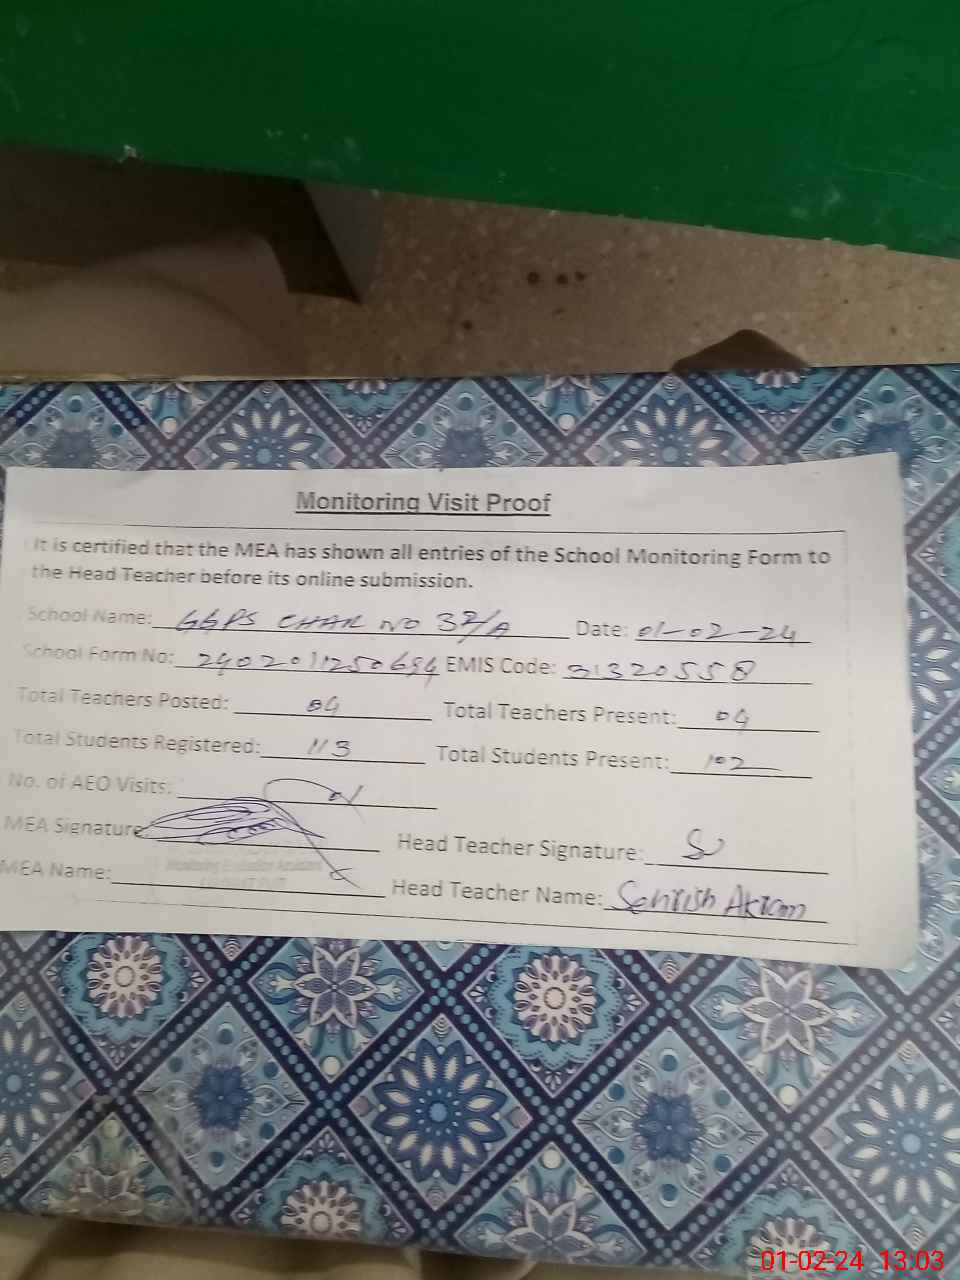 Monitoring Visit Proof
It is certified that the MEA has shown all entries of the School Monitoring Form to
the Head Teacher before its online submission.
School Name: GGPS CHAK NO 32/A Date: 01-02-24
School Form No: 2402011250694 EMIS Code: 31320558
Total Teachers Posted: 04 Total Teachers Present: 04
Total Students Registered: 113 Total Students Present: 102
No. of AEO Visits: 01
MEA Signature Head Teacher Signature:
Monitoring Evaluation Assistant
MEA Name: Head Teacher Name: Sehrish Akram
01-02-24 13:03